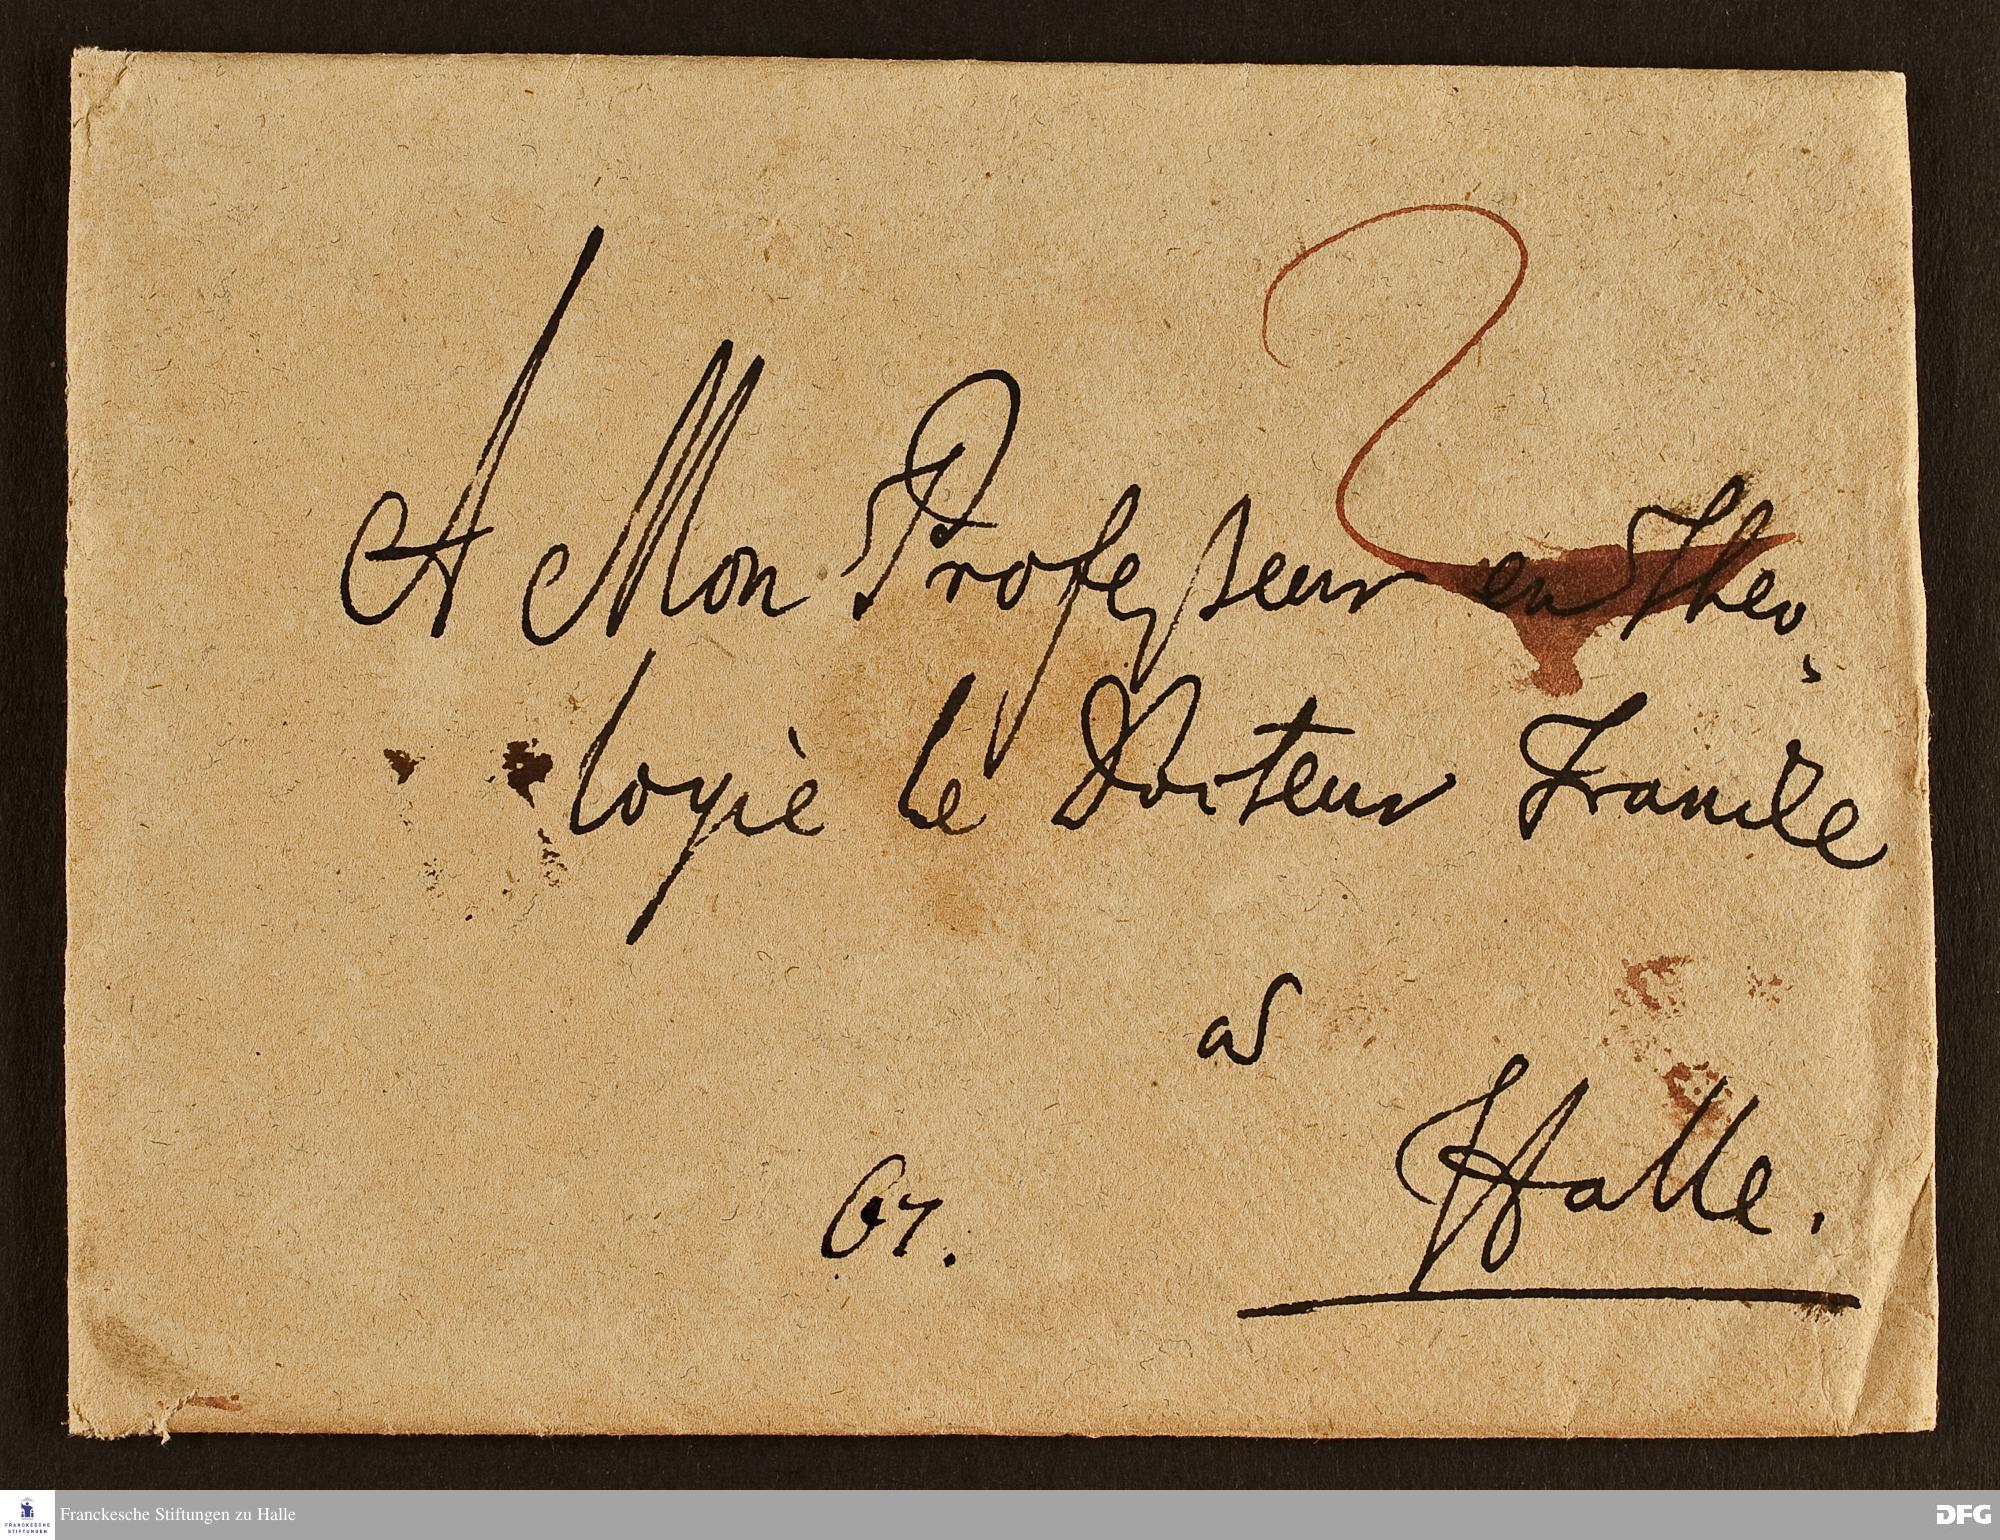 A Mon Professeur en Theo,
logie le Docteur Francke
a
Halle.
67.
FRANCKESCHE
STIFTUNGEN
Franckesche Stiftungen zu Halle
DFG